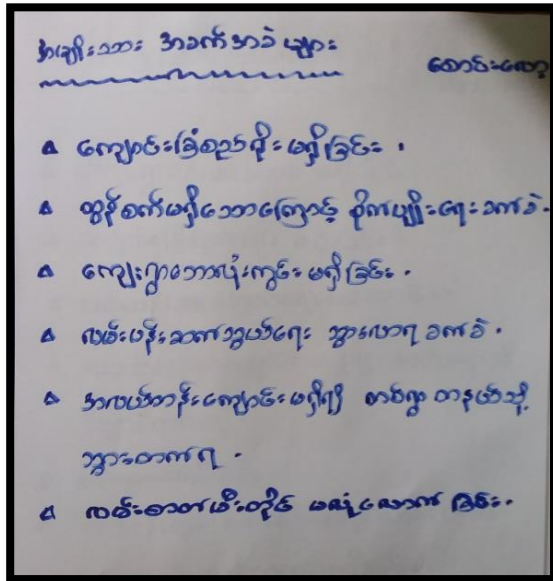 အမျိုးသား အခက်အခဲ များ
စောင်းလော့
ကျောင်းခြံစည်ရိုး မရှိခြင်း .
ထွန်စက်မရှိသောကြောင့် စိုက်ပျိုးရေး ခက်ခဲ .
ကျေးရွာဘောလုံးကွင်း မရှိခြင်း .
လမ်းပန်းဆက်သွယ်ရေး သွားလာရ ခက်ခဲ .
အလယ်တန်းကျောင်း မရှိ၍ တစ်ရွာ တနယ်သို့
သွားတက်ရ .
လမ်းဓာတ်မီးတိုင် မလုံလောက် ခြင်း .